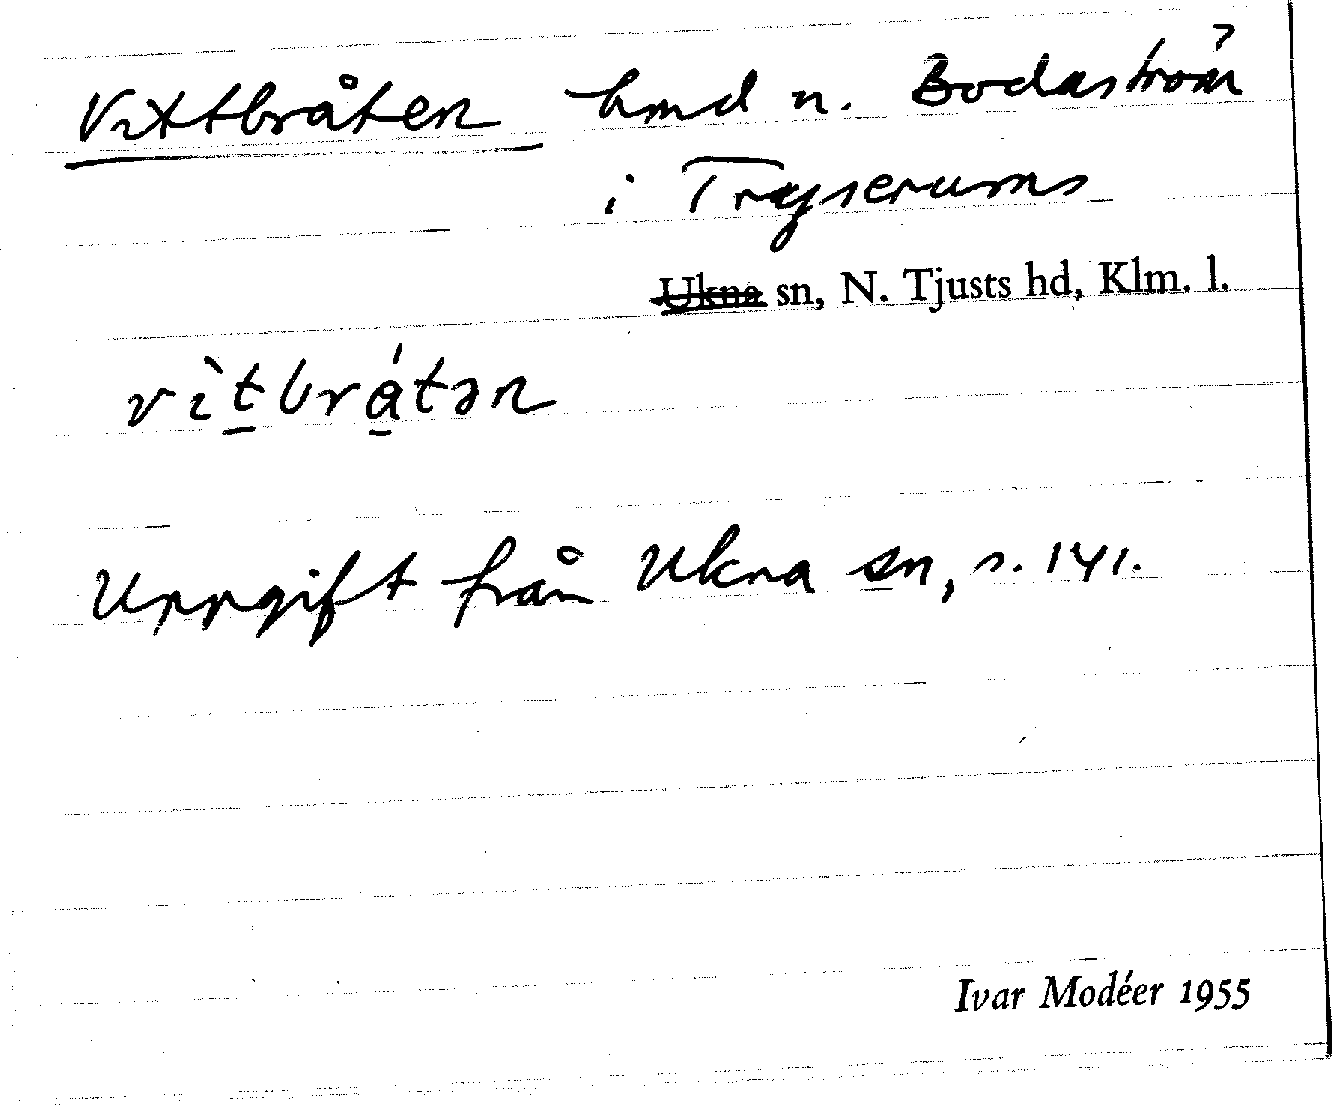 Vittbråten hmd u. Bodaström
i Tryserums
Ukna sn, N. Tjusts hd, Klm. l.
vìtbrátən
Uppgift från Ukna sn, s. 141.
Ivar Modéer 1955